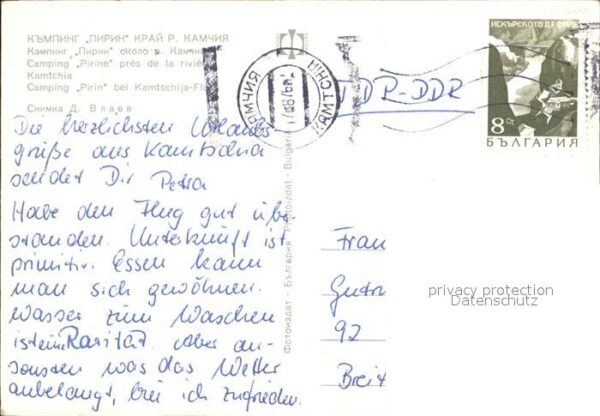 КЪМПИНГ „ПИРИН" КРАЙ Р. КАМЧИЯ
Кемпинг „Пирин" около р. Камчия
Camping „Pirine" près de la riviè
Kamtchia
Camping „Pirin" bei Kamtschija-Fl
Снимка Д. Влаев
Die herzlichsten Urlaubs
grüße aus Kamtschia
sendet Dir Petra
Habe den Flug gut übe
standen. Unterkunft ist
primitiv. Essen kann
man sich gewöhnen.
Wasser zum Waschen
ist eine Rarität. Aber an-
sonsten was das Wetter
anbelangt, bin ich zufrieden.
Фотоиздат - България Photoizdat - Bulgarie
КАМЧИЯ
KAMTCHIA
DDR
ИСКЪРСКОТО ДЕФИЛЕ
8 Ст.
БЪЛГАРИЯ
Frau
92
Breit
privacy protection
Datenschutz